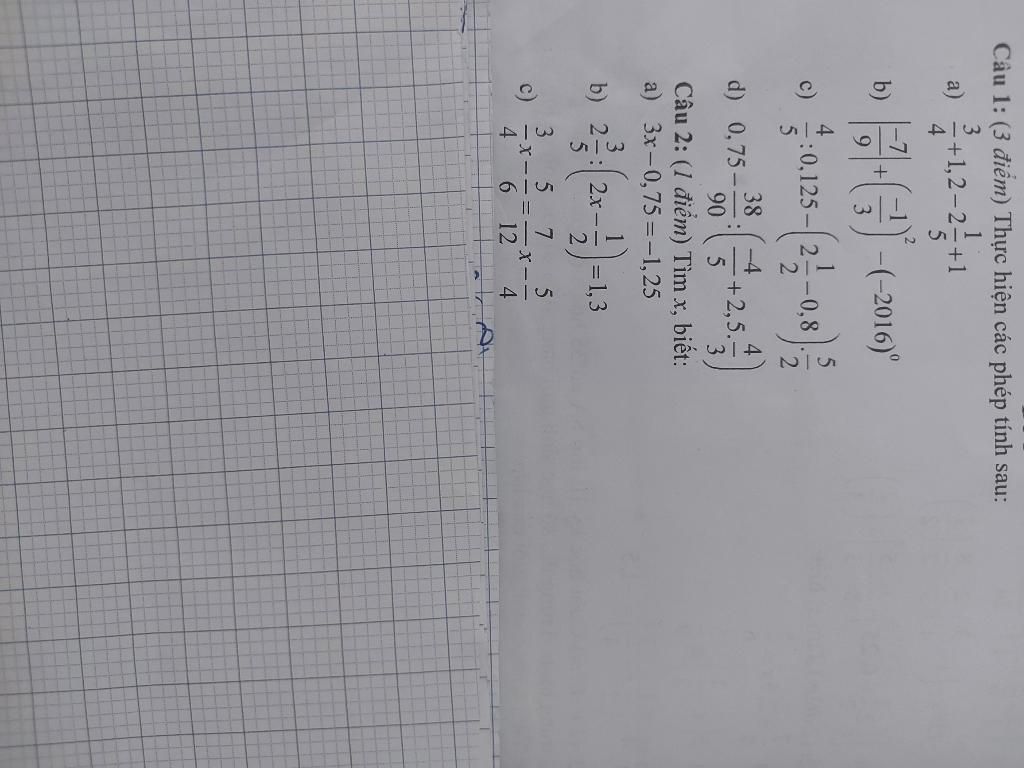 Câu 1: (3 điểm) Thực hiện các phép tính sau:
a) 3/4 + 1,2 − 2 1/5 + 1
b) |−7/9| + (−1/3)² − (−2016)⁰
c) 4/5 : 0,125 − (2 1/2 − 0,8) . 5/2
d) 0,75 − 38/90 : (−4/5 + 2,5 . 4/3)
Câu 2: (1 điểm) Tìm x, biết:
a) 3x − 0,75 = −1,25
b) 2 3/5 : (2x − 1/2) = 1,3
c) 3/4 x − 5/6 = 7/12 x − 5/4